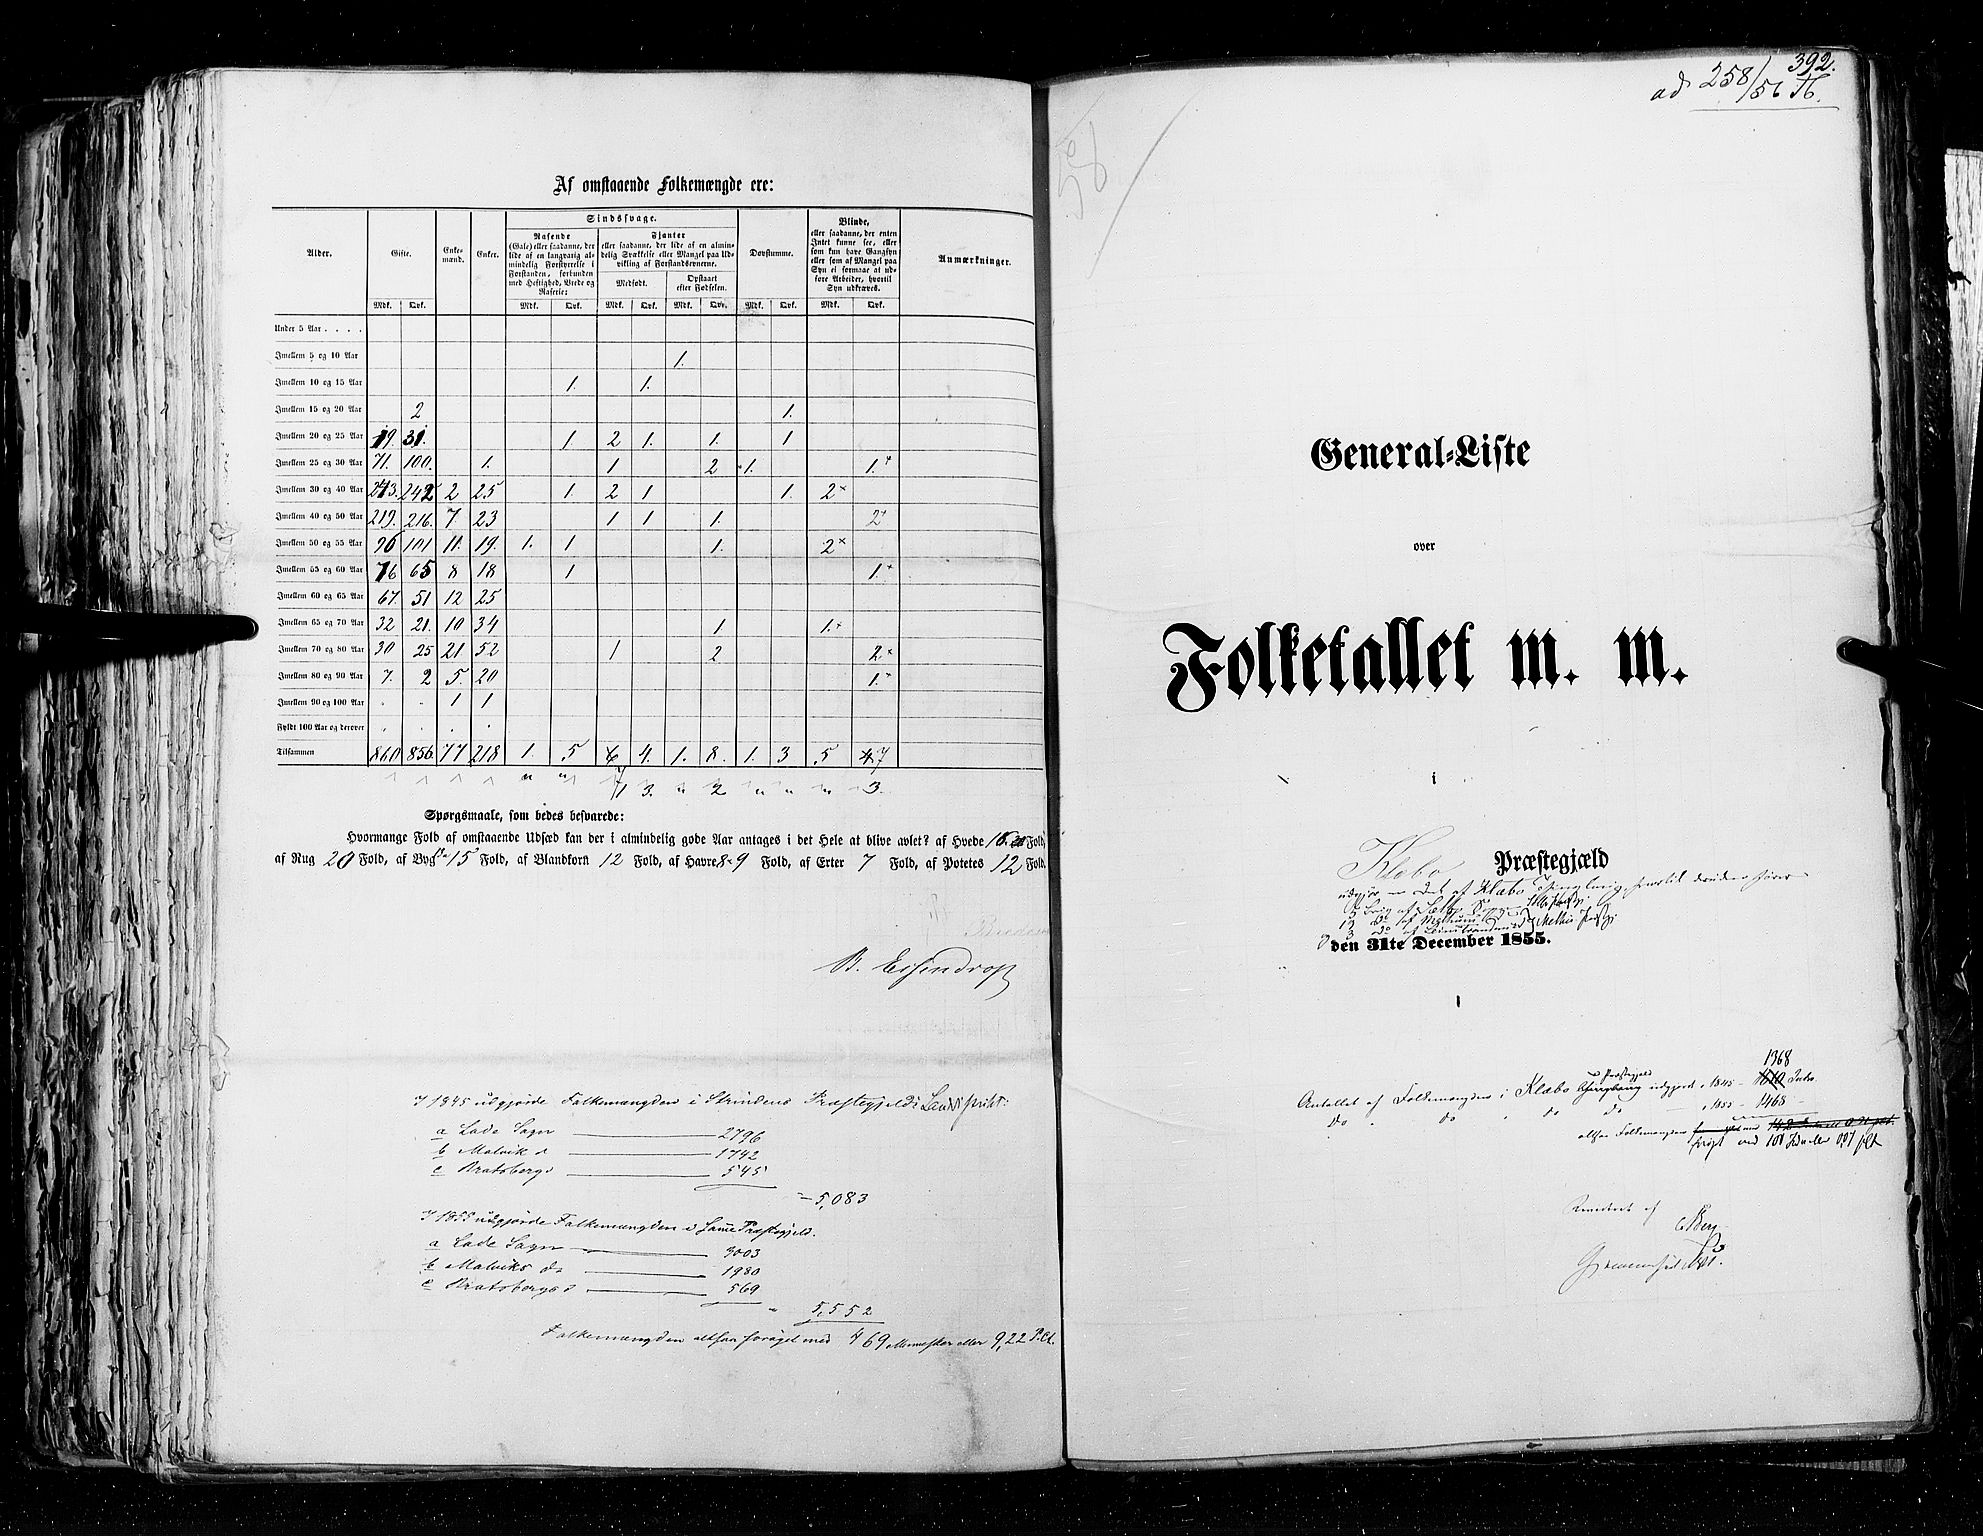 Af omstaaende Folkemængde ere:
Alder. Gifte. Enke-mænd. Enker. Sindssvage. Døvstumme. Blinde, eller saadanne, der enten Intet kunne see, eller som kun have Gangsyn eller som af Mangel paa Syn ei formaae at udføre Arbeider, hvortil Syn udkræves. Anmærkninger.
Rasende (Gale) eller saadanne, der lide af en langvarig almindelig Forstyrrelse i Forstanden, forbunden med Heftighed, Vrede og Raserie:
Fjanter eller saadanne, der lide af en almindelig Svækkelse eller Mangel paa Udvikling af Forstandsevnerne.
Medfødt. Opstaaet efter Fødselen.
Mdk. Qvk. Mdk. Qvk. Mdk. Qvk. Mdk. Qvk. Mdk. Qvk. Mdk. Qvk.
Under 5 Aar . . . .
Imellem 5 og 10 Aar 1.
Imellem 10 og 15 Aar 1. 1.
Imellem 15 og 20 Aar 2 1.
Imellem 20 og 25 Aar 19. 31. 1 2 1. 1. 1
Imellem 25 og 30 Aar 71. 100. 1. 1 2 1. 1.+
Imellem 30 og 40 Aar 243. 242 2 25 1. 2 1 1. 2+
Imellem 40 og 50 Aar 219. 216. 7. 23 1 1 1. 2+
Imellem 50 og 55 Aar 96 101 11. 19. 1. 1 1. 2+
Imellem 55 og 60 Aar 76 65 8 18 1 1.+
Imellem 60 og 65 Aar 67. 51 12 25
Imellem 65 og 70 Aar 32 21. 10 34 1 1.+
Imellem 70 og 80 Aar 30 25 21 52 1 2 2+
Imellem 80 og 90 Aar 7. 2 5. 20 1.+
Imellem 90 og 100 Aar . . 1 1
Fyldt 100 Aar og derover . . .
Tilsammen 860 856 77 218 1. 5 6 4. 1. 8. 1. 3 5 4 7
7 3. 2 3.
Spørgsmaale, som bedes besvarede:
Hvormange Fold af omstaaende Udsæd kan der i almindelig gode Aar antages i det Hele at blive avlet? af Hvede 16 Fold,
af Rug 20 Fold, af Byg 15 Fold, af Blandkorn 12 Fold, af Havre 8-9 Fold, af Erter 7 Fold, af Potetes 12 Fold.
B. Essendrop
I 1845 udgjorde Folkemængden i Strindens Præstegjelds Landdistrikt:
a Lade Sogn 2796
b Malvik d 1742
c Bratsbergs 545
= 5,083
I 1855 udgjorde Folkemængden i samme Præstegjeld.
a Lade Sogn 3003
b Malviks do 1980
c Bratsbergs d 569
5,552
Folkemængden altsaa forøget med 469 Mennesker eller 9,22 P.Ct.
392.
ad 258/56 H.
58
General-Liste
over
Folketallet m. m.
i
Klæbo Præstegjæld
udgjør en Del af Klæbo Thinglaug,
den 31te December 1855.
1368
Præstegjeld
Antallet af Folkemængden i Klæbo Thinglaug udgjorde i 1845 - 1410 Indv.
do do do do - i 1855 - 1468 -
altsaa Folkemængden
forøget med 100 Indv. eller 0,97 pCt
Revideret af
Berg